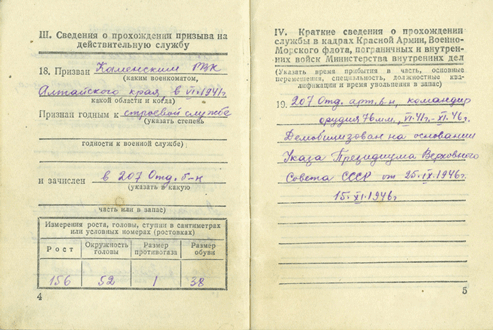 III. Сведения о прохождении призыва на
действительную службу
18. Призван Каменским РВК
(каким военкоматом,
Алтайского края, в VI 1941г.
какой области и когда)
Признан годным к строевой службе
(указать степень
годности к военной службе)
и зачислен в 207 Отд. б-н
(указать в какую
часть или в запас)
Измерения роста, головы, ступни в сантиметрах
или условных номерах (ростовках)
Рост Окружность головы Размер противогаза Размер обуви
156 52 1 38
4
IV. Краткие сведения о прохождении
службы в кадрах Красной Армии, Военно-
Морского флота, пограничных и внутрен-
них войск Министерства внутренних дел
(Указать время прибытия в часть, основные
перемещения, специальность, должностные ква-
лификации и время увольнения в запас)
19. 207 Отд. арт. б-н, командир
орудия 76мм, VI.41г.- XI.46г.
Демобилизован на основании
Указа Президиума Верховного
Совета СССР от 25.IX.1946г.
15.XI.1946г
5